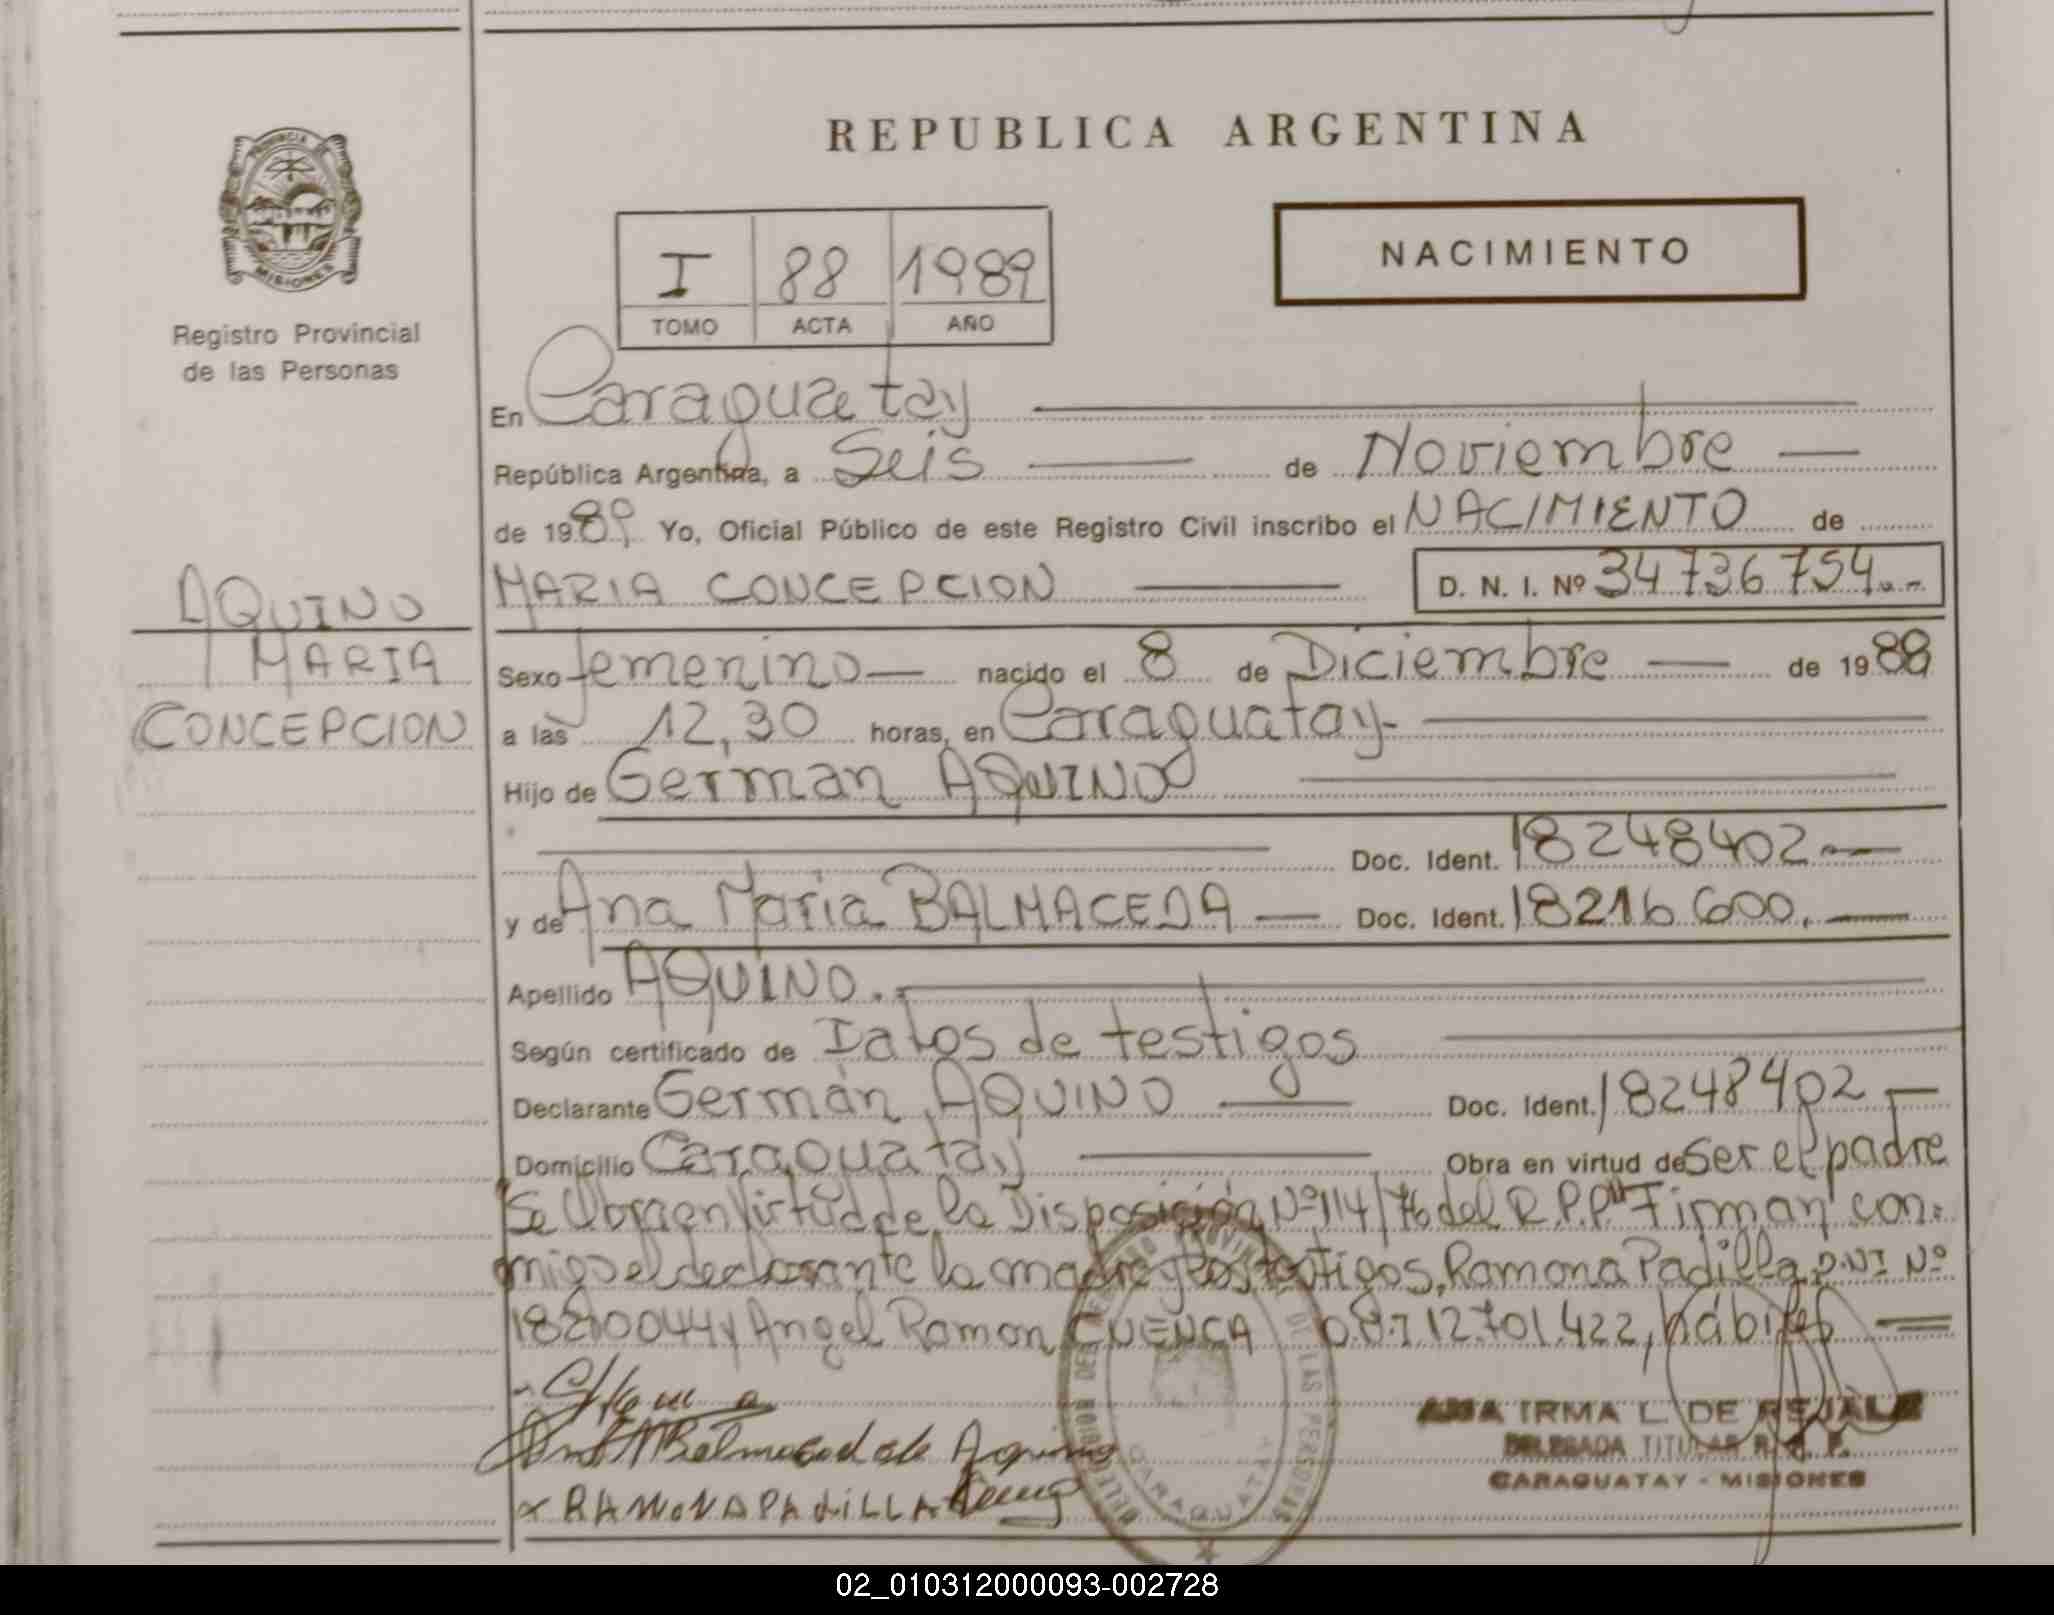 REPUBLICA ARGENTINA
PROVINCIA DE
MISIONES
Registro Provincial
de las Personas
I 88 1989
TOMO ACTA AÑO
NACIMIENTO
En Caraguatay
República Argentina, a Seis de Noviembre
de 1989 Yo, Oficial Público de este Registro Civil inscribo el NACIMIENTO de
MARIA CONCEPCION D. N. I. Nº 34736754
AQUINO
MARIA
CONCEPCION
Sexo femenino nacido el 8 de Diciembre de 1988
a las 12,30 horas, en Caraguatay
Hijo de German AQUINO
Doc. Ident. 18248402
y de Ana Maria BALMACEDA Doc. Ident. 18216600
Apellido AQUINO.
Según certificado de Datos de testigos
Declarante Germán AQUINO Doc. Ident. 18248402
Domicilio Caraguatay Obra en virtud de ser el padre
"Se Obra en Virtud de la Disposición Nº 114/76 del R.P.P" Firman con=
migo el declarante la madre y los testigos, Ramona Padilla D.N.I Nº
y Angel Ramon CUENCA D.N.I 12.701.422, hábiles
Balmaceda de Aquino
x RAMONA PADILLA
DELEGACION DEL REGISTRO PROVINCIAL DE LAS PERSONAS
CARAGUATAY
ANA IRMA L. DE
DELEGADA TITULAR R. P. P.
CARAGUATAY - MISIONES
02_010312000093-002728